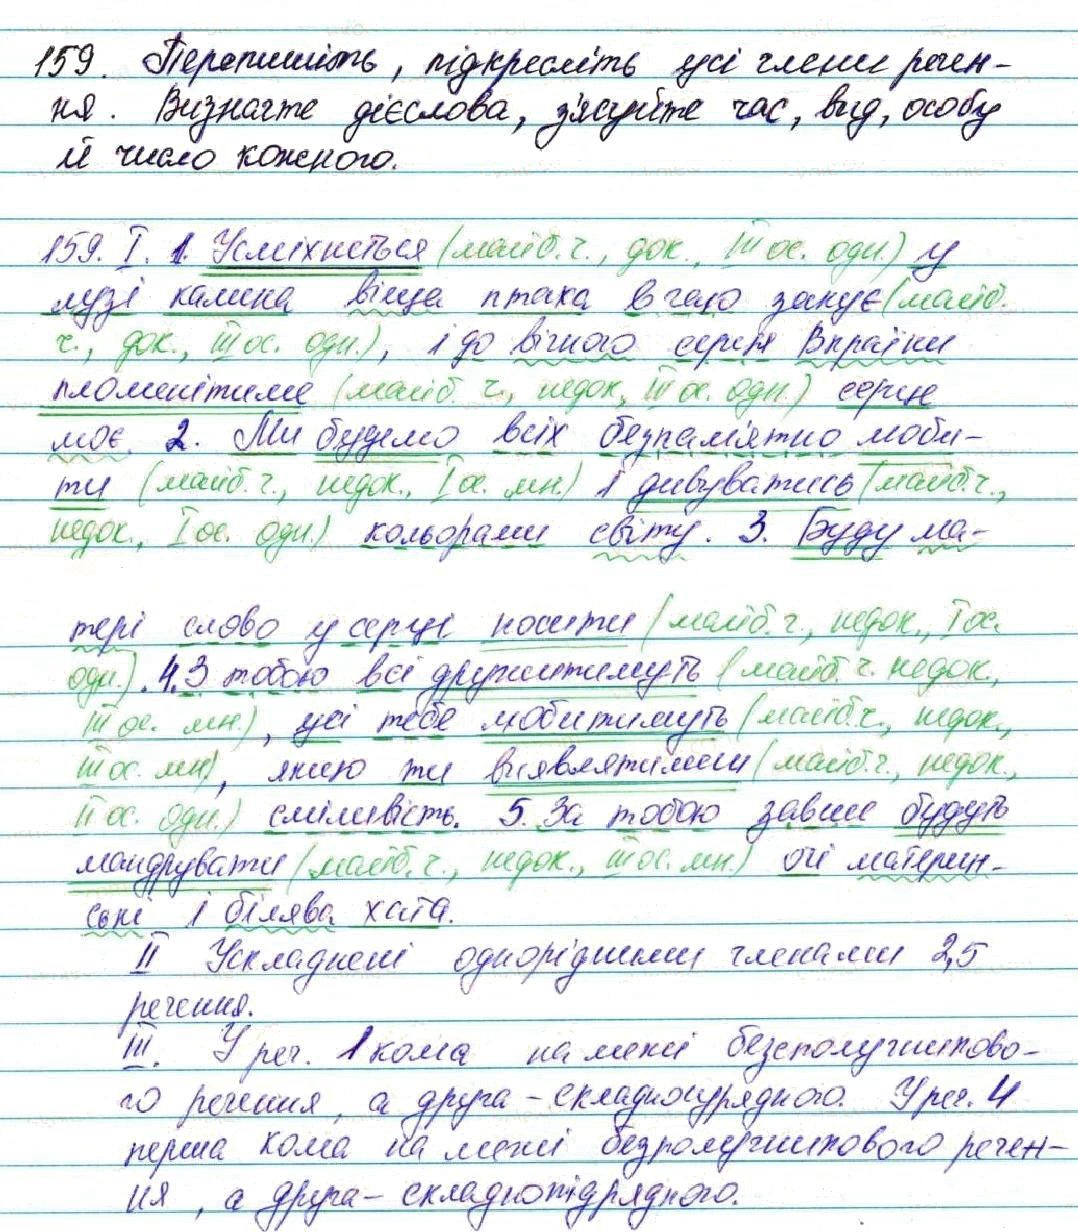 159. Перепишіть, підкресліть усі члени речен-
ня. Визначте дієслова, з'ясуйте час, вид, особу
й число кожного.
159. I. 1. Усміхнеться (майб. ч., док., III ос. одн.) у
лузі калина віща птаха в гаю закує (майб.
ч., док., III ос. одн.), і до вічного серця Вкраїни
пломенітиме (майб. ч., недок, III ос. одн.) серце
моє 2. Ми будемо всіх безпам'ятно люби-
ти (майб. ч., недок., I ос. мн.) і дивуватись (майб. ч.,
недок., I ос. одн.) кольорами світу. 3. Буду ма-
тері слово у серці носити (майб. ч., недок., I ос.
одн.). 4. З тобою всі дружитимуть (майб. ч. недок.,
III ос. мн.), усі тебе любитимуть (майб. ч., недок.,
III ос. мн), якщо ти виявлятимеш (майб. ч., недок.,
II ос. одн.) сміливість. 5. За тобою завше будуть
мандрувати (майб. ч., недок., III ос. мн.) очі материн-
ські і білява хата.
II Ускладнені однорідними членами 2,5
речення.
III. У реч. 1 кома на межі безсполучниково-
го речення, а друга - складносурядного. У реч. 4
перша кома на межі безполучникового речен-
ня, а друга - складнопідрядного.